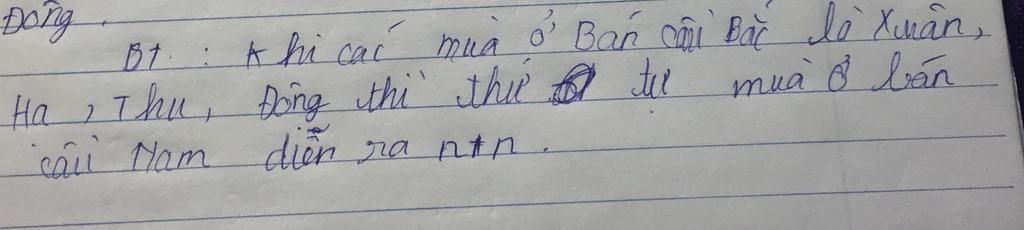 Đông.
Bt. : Khi các mùa ở Bán cầu Bắc là Xuân,
Hạ, Thu, Đông thì thứ tự mùa ở bán
cầu Nam diễn ra ntn.